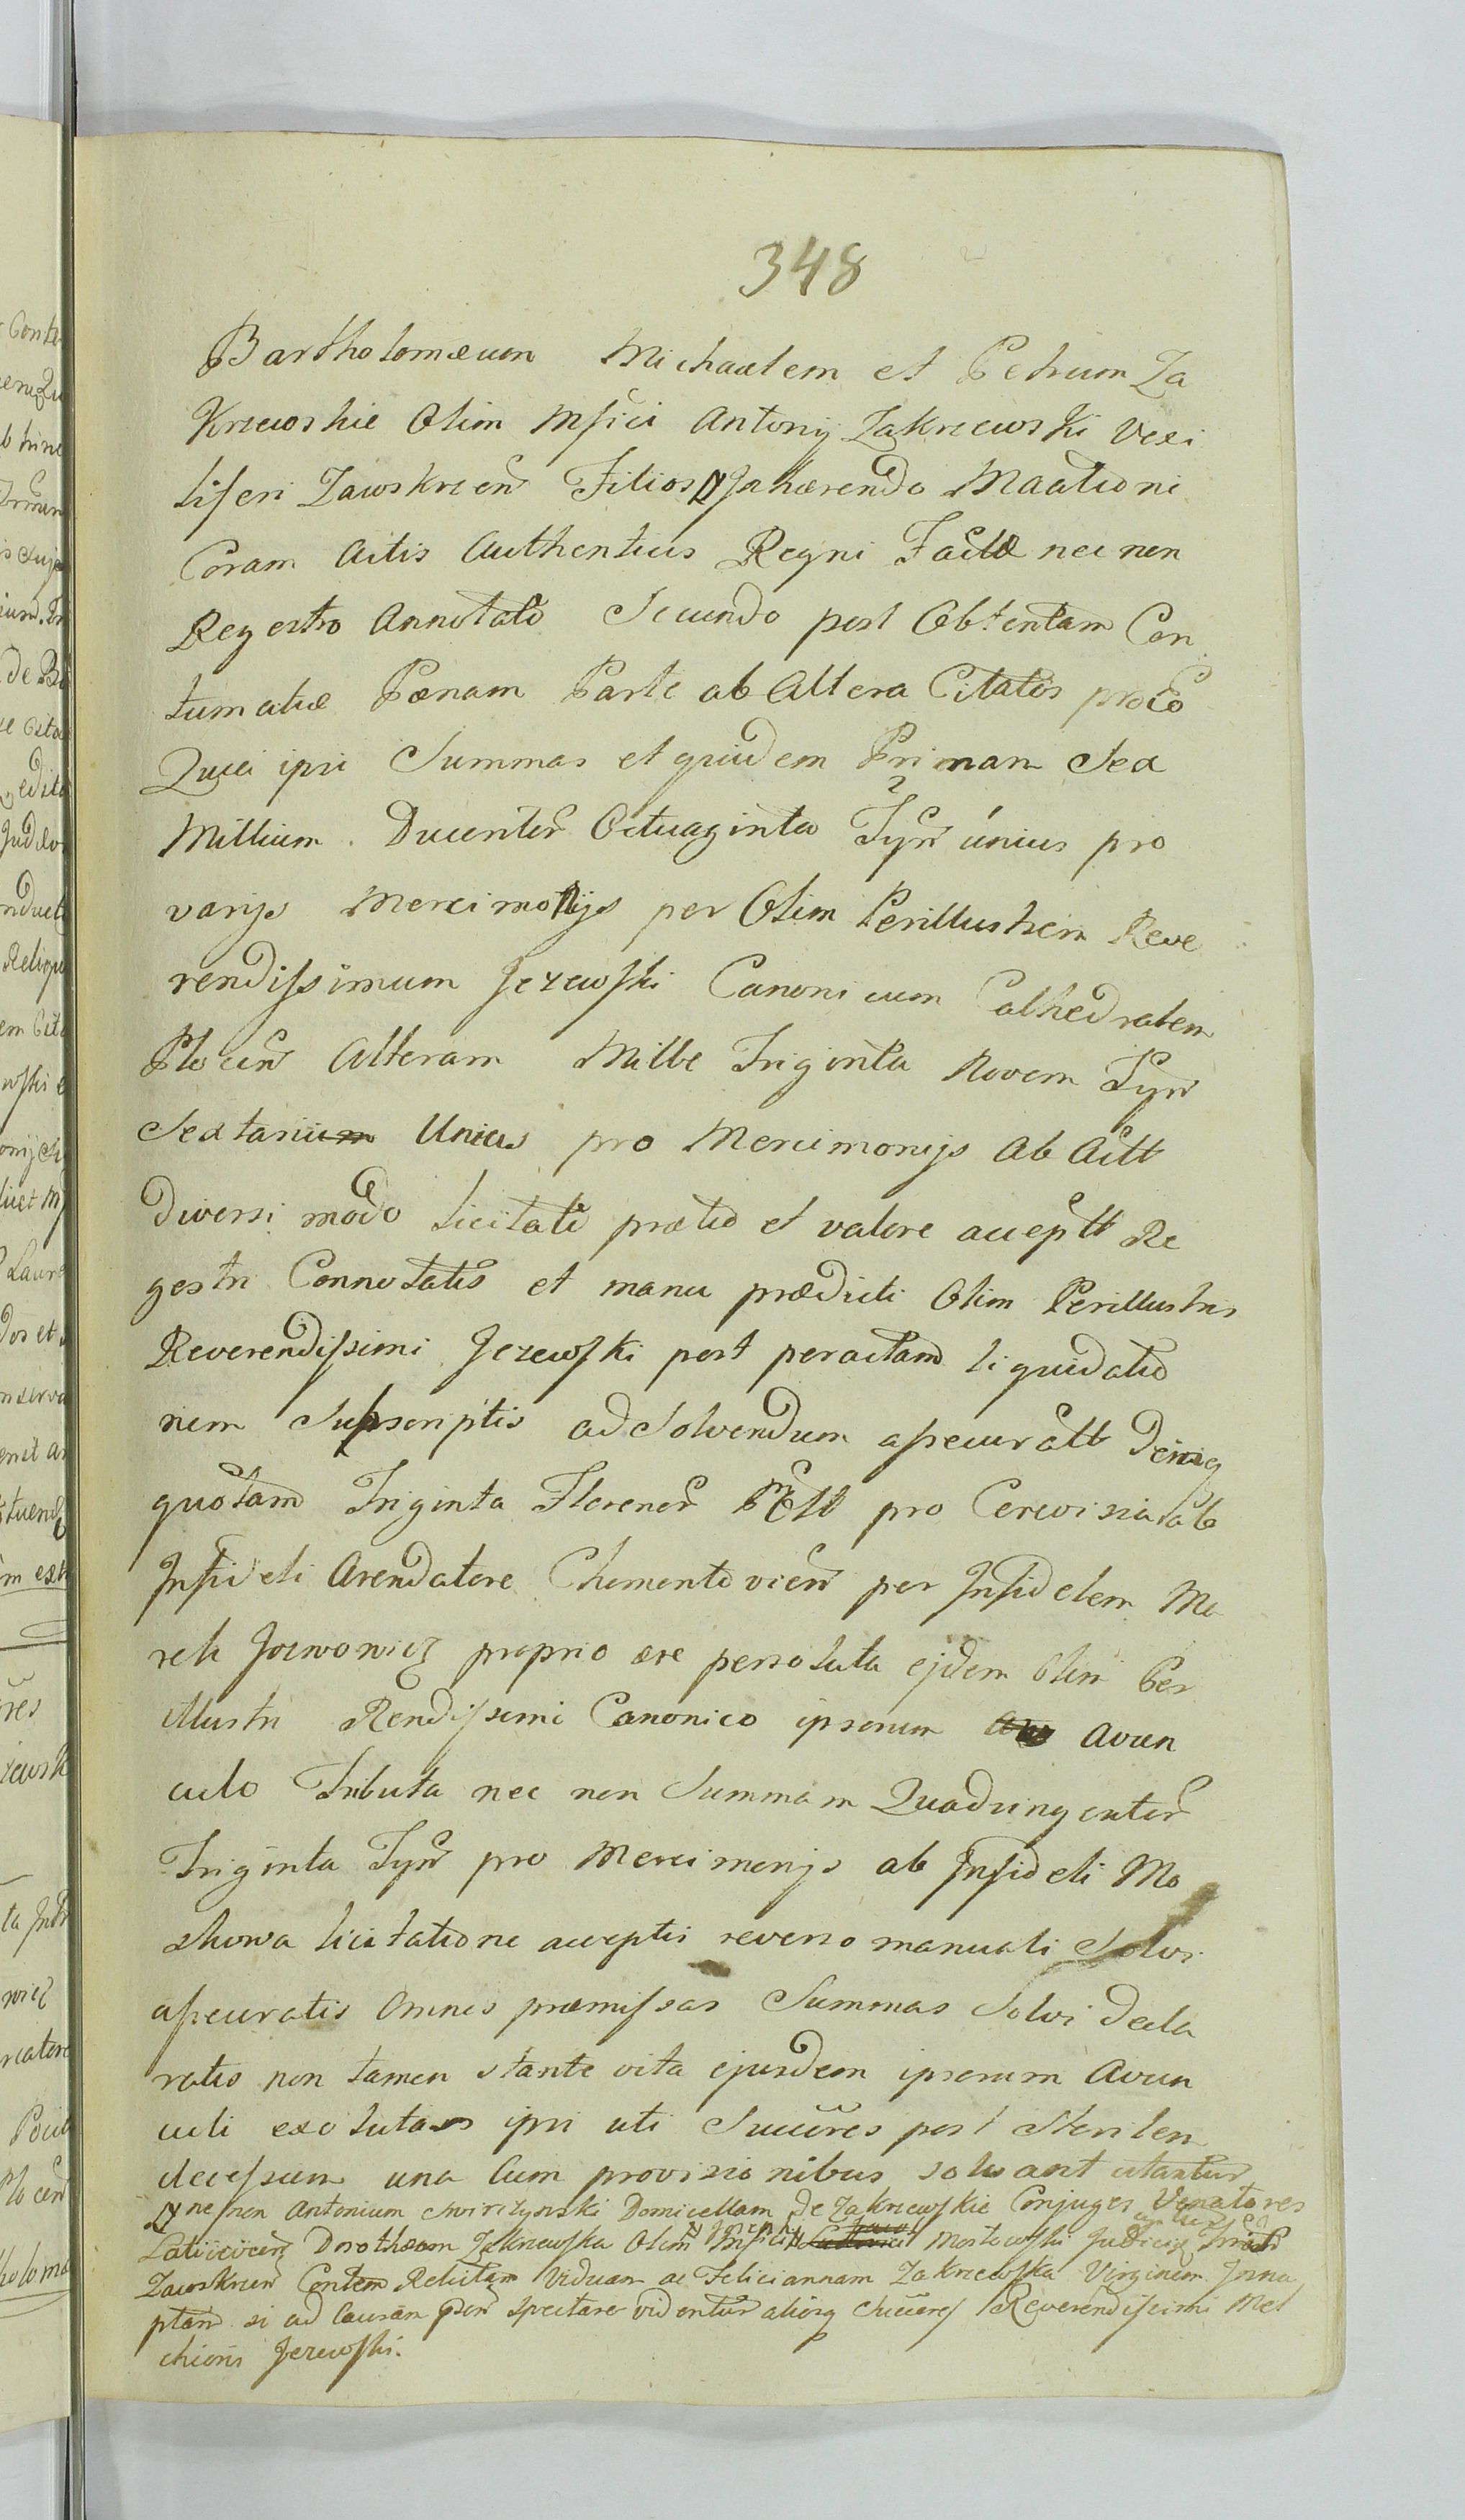 348
Bartholomæum Michaelem et Petrum Za
Krzewskie Olim Mfici Antonij Zakrzewski Vexi
liferi Zawskrzen Filios Inhærendo Maationi
Coram Actis Authenticis Regni Factæ nec non
Regestro Annotato Secundo post Obtentam Con
tumatiæ Pœnam Parte ab Altera Citatos pro eo
Quia ipsi Summas et quidem Primam Sex
Millium Ducentor Octuaginta Tynf unius pro
varijs Mercimonijs per Olim Perillustrem Reve
rendissimum Jezewski Canonicum Cathedralem
Plocen Alteram Mille Triginta Novem Tynf
Sextarium Unius pro Mercimonijs Ab Actt
Diversi modo licitato prætio et valore accept Re
gestri Connotatis et manu prædicti Olim Perillustris
Reverendissimi Jezewski post peractam liquidatio
nem Subscriptis ad Solvendum assecuratt Deniq
quotam Triginta Florenor Poll pro Cerevisia ab
Infideli Arendatore Chomentovien per Infidelem Mo
rek Jocwowicz proprio ære persoluta ejdem Olim Per
illustri Rendissimi Canonico ipsorum Avun
culo Tributa nec non Summam Quadringentor
Triginta Tynf pro Mercimonijs ab Infideli Mo
showa licitatione acceptis reverso manuali Solvi
assecuratis Omnes præmissas Summas Solvi decla
ratis non tamen stante vita ejusdem ipsorum Avun
culi exolutas ipsi uti Succres post Sterilem
decessum una Cum provisionibus solvant citantur
nec non Antonium Chwirczynski Domicellam de Zakrzewskie Conjuges Venatores
Laticicien Dorotheam Zakrzewska Olim Mfici Josephi Mostowski Judicis
Zawskrzen Contem Relictam Viduam ac Feliciannam Zakrzewska Virginem Inna
ptam si ad Causam psen spectare videntur aliosq Succres Reverendissimi Mel
chioris Jezewski.